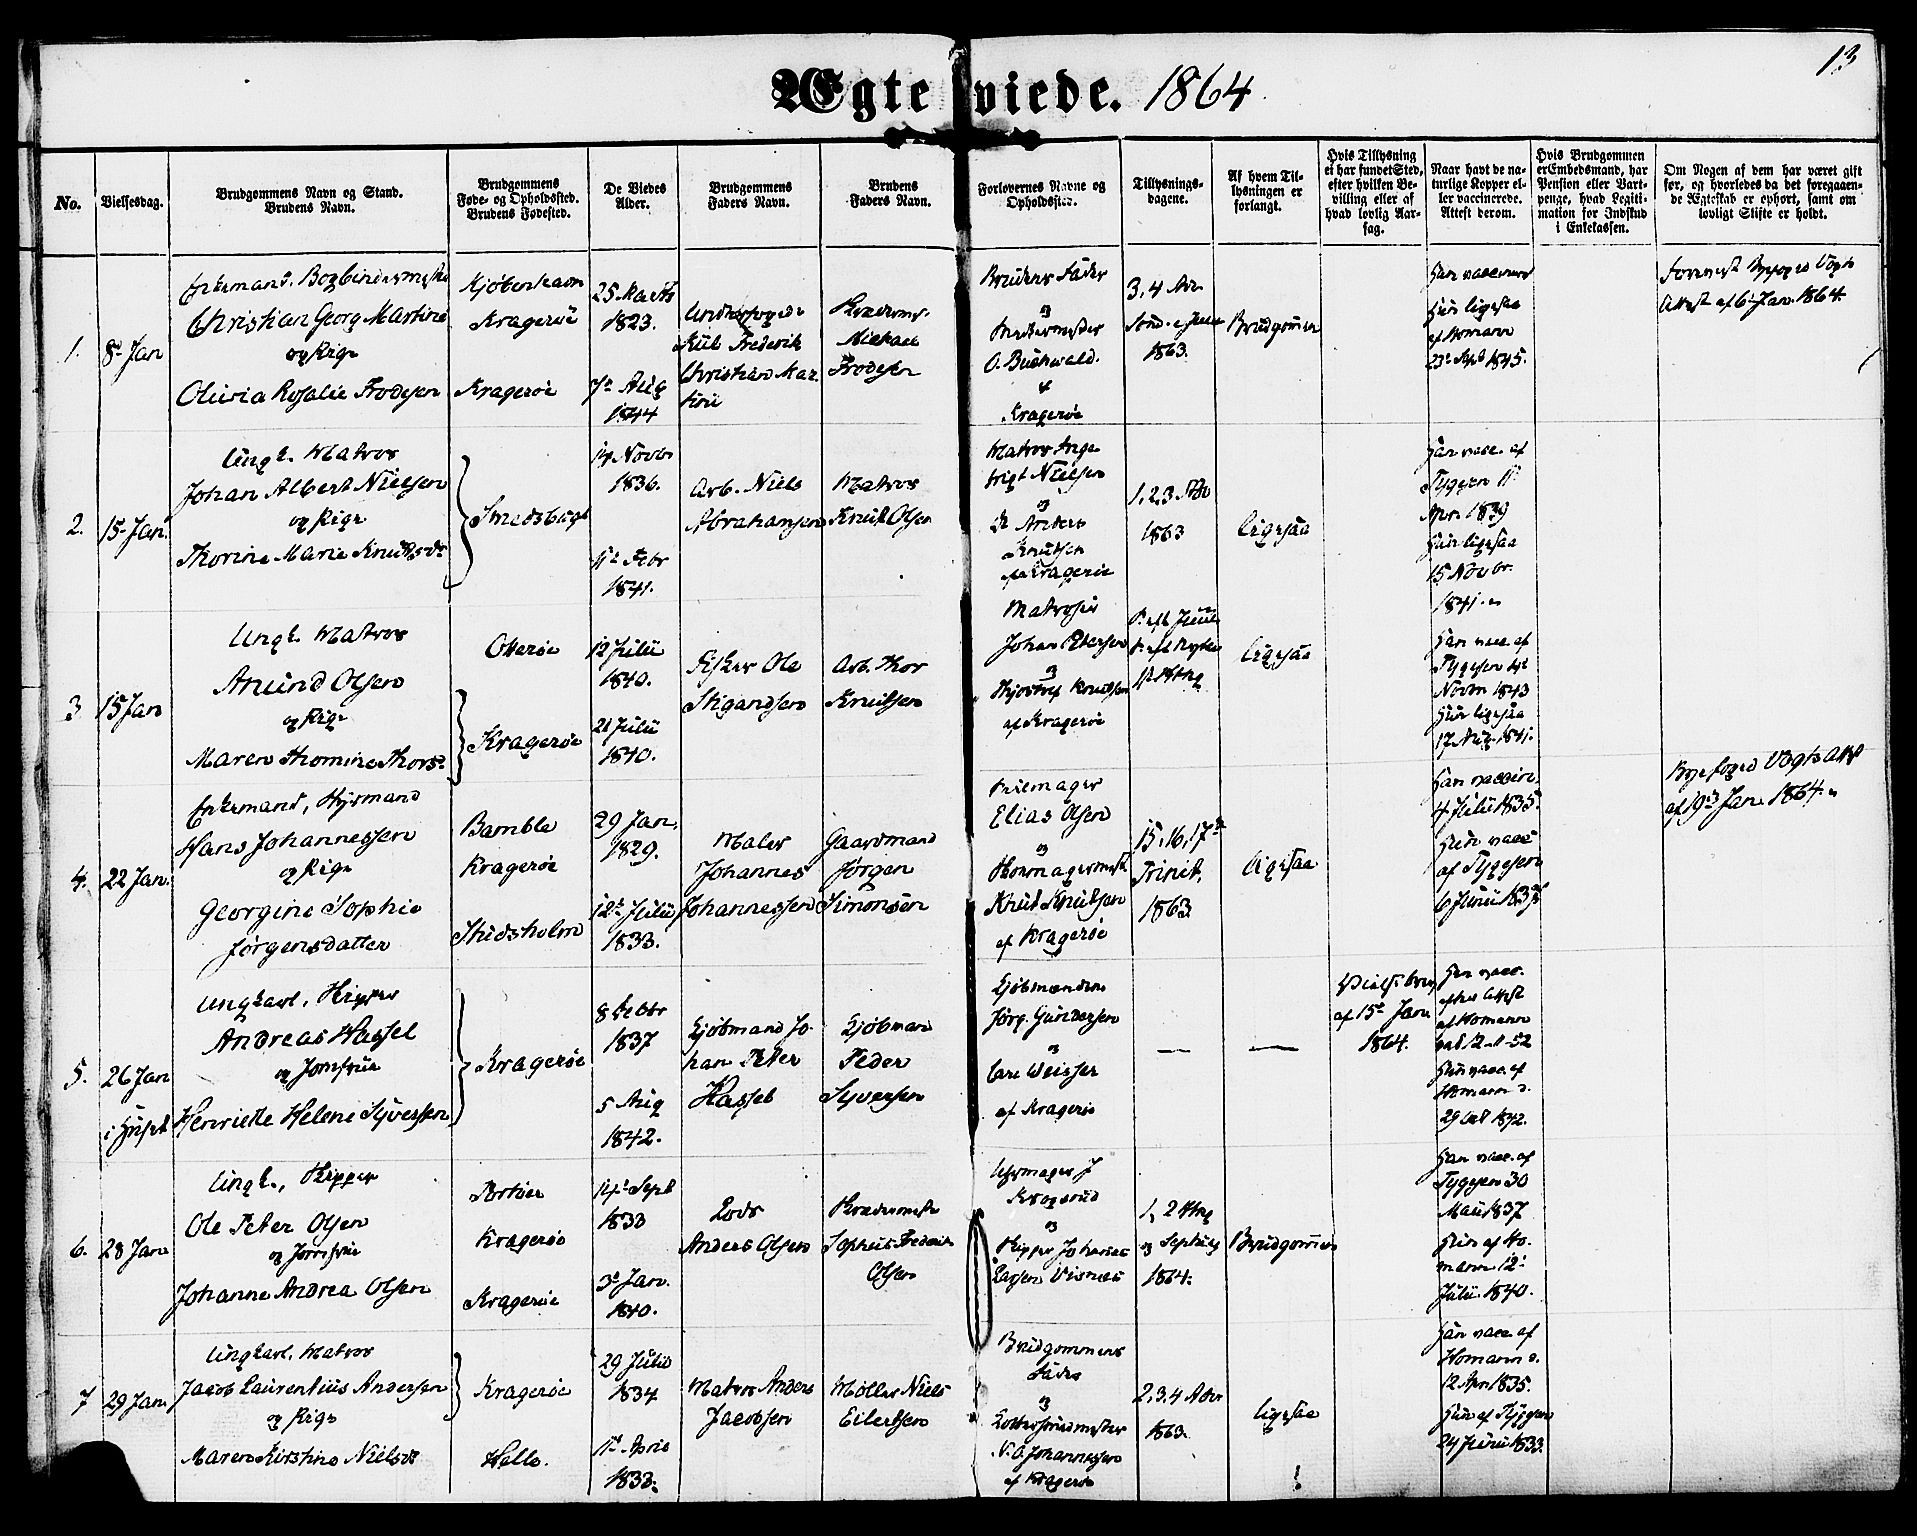 13
Ægteviede. 1864
No.
Vielsesdag.
Brudgommens Navn og Stand.
Brudens Navn.
Brudgommens
Føde- og Opholdssted.
Brudens Fødested.
De Viedes
Alder.
Brudgommens
Faders Navn.
Brudens
Faders Navn.
Forlovernes Navne og
Opholdssted.
Tillysnings-
dagene.
Af hvem Til-
lysningen er
forlangt.
Hvis Tillysning
ei har fundet Sted,
efter hvilken Be-
villing eller af
hvad lovlig Aar-
sag.
Naar havt de na-
turlige Kopper el-
ler vaccinerede.
Attest derom.
Hvis Brudgommen
er Embedsmand, har
Pension eller Vart-
penge, hvad Legiti-
mation for Indskud
i Enkekassen.
Om Nogen af dem har været gift
før, og hvorledes da det foregaaen-
de Ægteskab er ophørt, samt om
lovligt Skifte er holdt.
1.
8d Jan
Enkemand. Bogbindermester
Christian Georg Martini
og Pige
Olivia Rosalie Frodesen
Kjøbenhavn
Kragerøe
Kragerøe
25 Marts
1823.
7de Aug
1844
Frederik
Christian Mar-
tini
Michael
Frodesen
Brudens Fader
og
O. Buchwald.
Kragerøe
3, 4 Adv
1863.
Brudgommen
Han vaccineret
Hun ligesaa
af Homann
23de Sept 1845.
Attest af 6 Jan. 1864.
2.
15 Jan
Ungk. Matros
Johan Albert Nielsen
og Pige
Thorine Marie Knudsdr
Smedsbugt
14 Novbr
1836.
11te Febr
1841.
Arb. Niels
Abrahamsen
Matros
Knud Olsen
Matros Inge-
brigt Nielsen
og
Anders
Knutsen
af Kragerøe
1, 2, 3 Adv
1863
Ligesaa
Han vacc. af
Tygesen 11
Apr. 1839
Hun ligesaa
15 Novbr.
1841.
3
15 Jan
Ungk. Matros
Anund Olsen
og Pige
Maren Thomine Thorsd.
Otterøe
Kragerøe
13 Juli
1840.
21 Juli
1840.
Fisker Ole
Stigandsen
Arb. Thor
Knutsen
Matroser
Johan Petersen
og
Knutsen
af Kragerøe
Ligesaa
Han vacc. af
Tygesen
Novbr 1843
Hun ligesaa
17 Aug. 1841.
4.
22 Jan.
Enkemand, Styrmand
Hans Johannessen
og Pige
Georgine Sophie
Jørgensdatter
Bamble
Kragerøe
Studsholm
29 Jan.
1829.
12te Juli
1833.
Maler
Johannes
Johannessen
Gaardmand
Jørgen
Simonsen
Elias Olsen
og
Knut Knutsen
af Kragerøe
15, 16, 17de
Trinit.
1863
Ligesaa
Han vaccin.
4 Juli 1835.
Hun vacc
af Tygesen
6 Juni 183
Byefoged Vogts Att
af 19de Jan. 1864.
5.
26 Jan
i Huset
Ungkarl, Skipper
Andreas Hassel
og Jomfrue
Henriette Helene Syversen
Kragerøe
8 Febr
1837
5 Aug
1842.
Kjøbmand Jo-
han Peter
Hassel
Kjøbman
Peder
Syversen
Kjøbmændene
Jørg. Gundersen
og
Carl Weisser
af Kragerøe
—
—
af 15de Jan
1864.
Han vacc.
efter Attest
af Homann
Hun vacc. af
Homann d.
29 Oct 1842.
6.
28 Jan
Ungk., Skipper
Ole Peter Olsen
og Jomfrue
Johanne Andrea Olsen
Portøer
Kragerøe
Kragerøe
14de Sept
1833
3de Jan.
1840.
Lods
Anders Olsen
Sophus Frederik
Olsen
Uhrmager J
Krogsrud
og
Skipper Johannes
Larsen Visnæs
1, 2
og
1864.
Brudgommen
Han vacc. af
Tygesen 30
Mai 1837
Hun af Ho-
mann 12
Juli 1840.
7
29 Jan.
Ungkarl, Matros
Jacob Laurentius Andersen
og Pige
Maren Kirstine Nielsdr
Kragerøe
Helle.
29 Juli
1834
1ste April
1833.
Matros Anders
Jacobsen
Møller Niels
Eilertsen
Brudgommens
Fader
og
N. A. Johannessen
af Kragerøe
2, 3, 4 Adv
1863.
ligesaa
Han vacc. af
Homann d.
12 Apr. 1835.
Hun af Tygesen
24 Juni 1833.